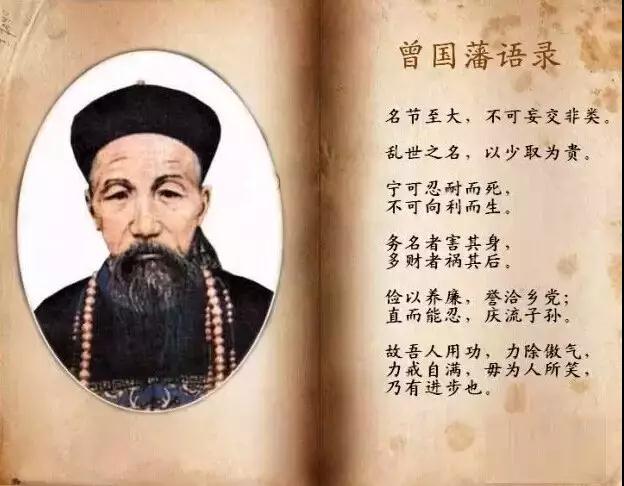 曾国藩语录
名节至大，不可妄交非类。
乱世之名，以少取为贵。
宁可忍耐而死，
不可向利而生。
务名者害其身，
多财者祸其后。
俭以养廉，誉洽乡党；
直而能忍，庆流子孙。
故吾人用功，力除傲气，
力戒自满，毋为人所笑，
乃有进步也。